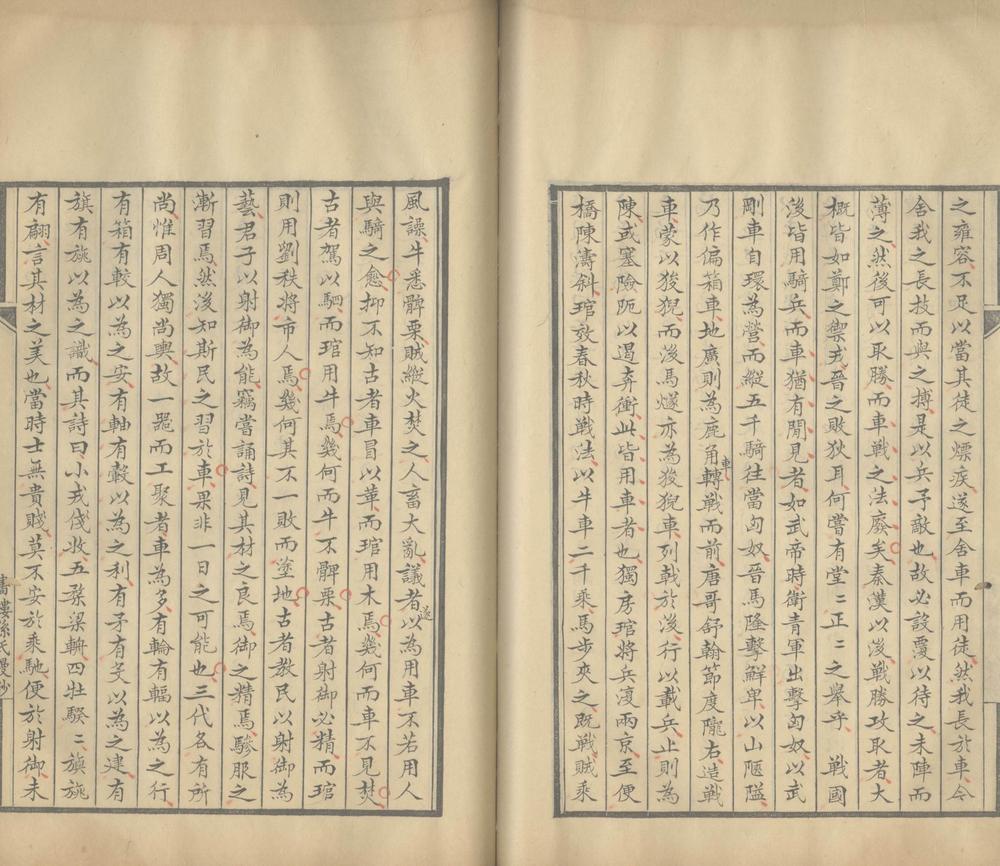 之雍容不足以當其徒之慓疾遂至舍車而用徒然我長於車今
舍我之長技而與之搏是以兵予敵也故必設覆以待之未陣而
薄之然後可以取勝而車戰之法廢矣秦漢以後戰勝攻取者大
概皆如鄭之禦戎晉之敗狄耳何嘗有堂二正二之舉乎 戰國
後皆用騎兵而車猶有閒見者如武帝時衛青軍出擊匈奴以武
剛車自環為營而縱五千騎往當匈奴晉馬隆擊鮮卑以山陿隘
乃作偏箱車地廣則為鹿角車轉戰而前唐哥舒翰節度隴右造戰
車蒙以狻猊而後馬燧亦為狻猊車列戟於後行以載兵止則為
陳或塞險阨以遏奔衝此皆用車者也獨房琯將兵復兩京至便
橋陳濤斜琯效春秋時戰法以牛車二千乘馬步夾之既戰賊乘
風譟牛悉髀栗賊縱火焚之人畜大亂議者遂以為用車不若用人
與騎之愈抑不知古者車冒以革而琯用木焉幾何而車不見焚
古者駕以駟而琯用牛焉幾何而牛不髀栗古者射御必精而琯
則用劉秩將市人焉幾何其不一敗而塗地古者教民以射御為
藝君子以射御為能竊嘗誦詩見其材之良焉御之精焉驂服之
漸習焉然後知斯民之習於車果非一日之可能也三代各有所
尚惟周人獨尚輿故一器而工聚者車為多有輪有輻以為之行
有箱有較以為之安有軸有轂以為之利有矛有殳以為之建有
旗有旐以為之識而其詩曰小戎俴收五楘梁輈四牡騤二旟旐
有翩言其材之美也當時士無貴賤莫不安於乘馳便於射御未
書樓孫氏鈔